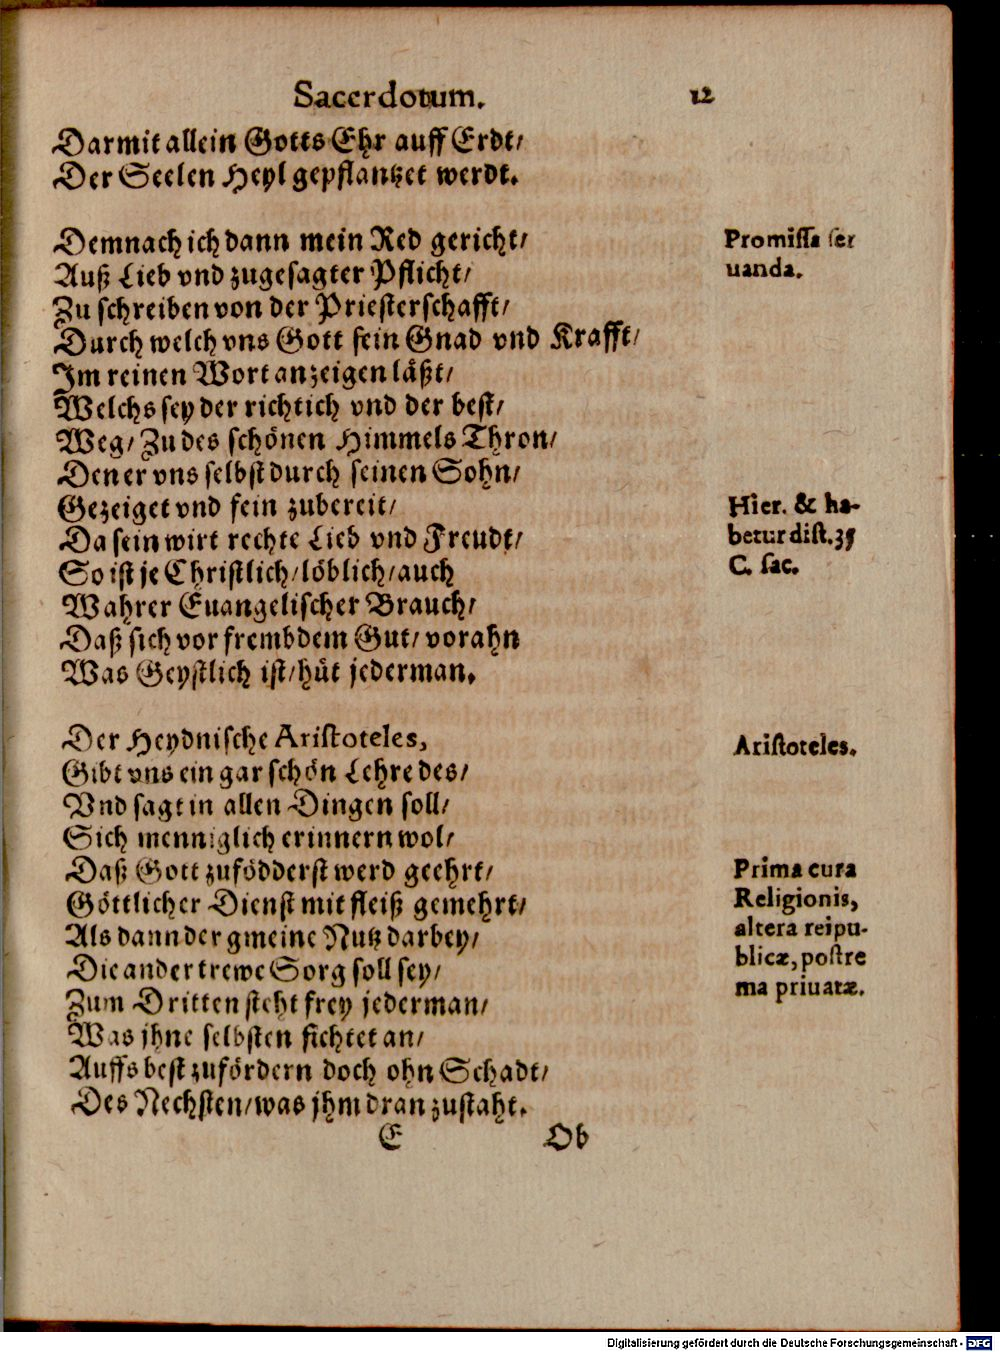 Sacerdotum. 12
Darmit allein Gotts Ehr auff Erdt/
Der Seelen Heyl gepflantzet werdt.
Demnach ich dann mein Red gericht/
Auß Lieb vnd zugesagter Pflicht/
Zu schreiben von der Priesterschafft/
Durch welch vns Gott sein Gnad vnd Krafft/
Im reinen Wort anzeigen läßt/
Welchs sey der richtich vnd der best/
Weg/ Zu des schönen Himmels Thron/
Den er vns selbst durch seinen Sohn/
Gezeiget vnd fein zubereit/
Da sein wirt rechte Lieb vnd Freudt/
So ist je Christlich/löblich/auch
Wahrer Euangelischer Brauch/
Daß sich vor frembdem Gut/ vorahn
Was Geystlich ist/hüt jederman.
Der Heydnische Aristoteles,
Gibt vns ein gar schön Lehre des/
Vnd sagt in allen Dingen soll/
Sich menniglich erinnern wol/
Daß Gott zufödderst werd geehrt/
Göttlicher Dienst mit fleiß gemehrt/
Als dann der gmeine Nutz darbey/
Die ander trewe Sorg soll sey/
Zum Dritten steht frey jederman/
Was jhne selbsten fichtet an/
Auffs best zufördern doch ohn Schadt/
Des Nechsten/was jhm dran zustaht.
E Ob
Promissa ser
uanda.
Hier. & ha-
betur dist. 35
C. sac.
Aristoteles.
Prima cura
Religionis,
altera reipu-
blicæ, postre
ma priuatæ.
Digitalisierung gefördert durch die Deutsche Forschungsgemeinschaft - DFG